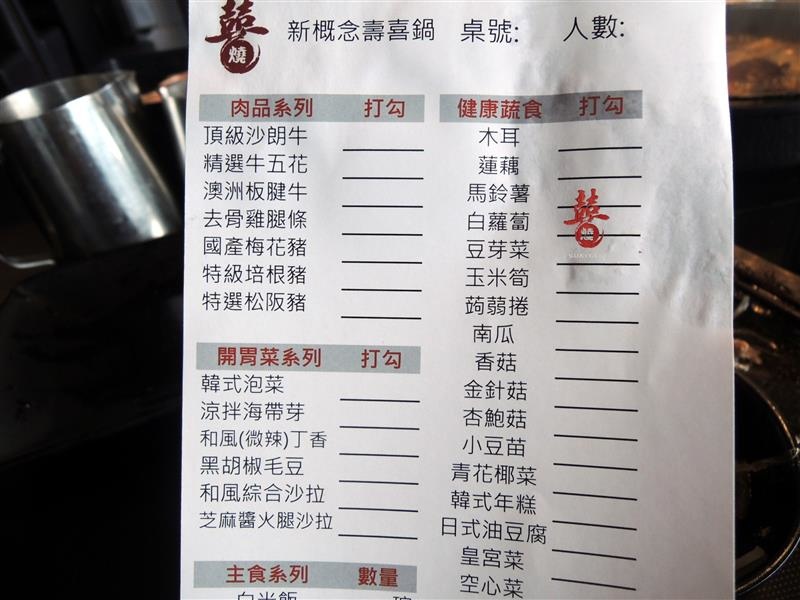 囍
燒
新概念壽喜鍋 桌號: 人數:
肉品系列 打勾
頂級沙朗牛
精選牛五花
澳洲板腱牛
去骨雞腿條
國產梅花豬
特級培根豬
特選松阪豬
開胃菜系列 打勾
韓式泡菜
涼拌海帶芽
和風(微辣)丁香
黑胡椒毛豆
和風綜合沙拉
芝麻醬火腿沙拉
主食系列 數量
白米飯 碗
健康蔬食 打勾
木耳
蓮藕
馬鈴薯
白蘿蔔
豆芽菜
玉米筍
蒟蒻捲
南瓜
香菇
金針菇
杏鮑菇
小豆苗
青花椰菜
韓式年糕
日式油豆腐
皇宮菜
空心菜
囍
燒